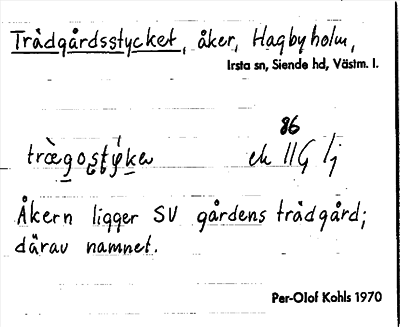 Trädgårdsstycket, åker, Hagbyholm,
Irsta sn, Siende hd, Västm. l.
86
ek 11G
Åkern ligger SV gårdens trädgård;
därav namnet.
Per-Olof Kohls 1970